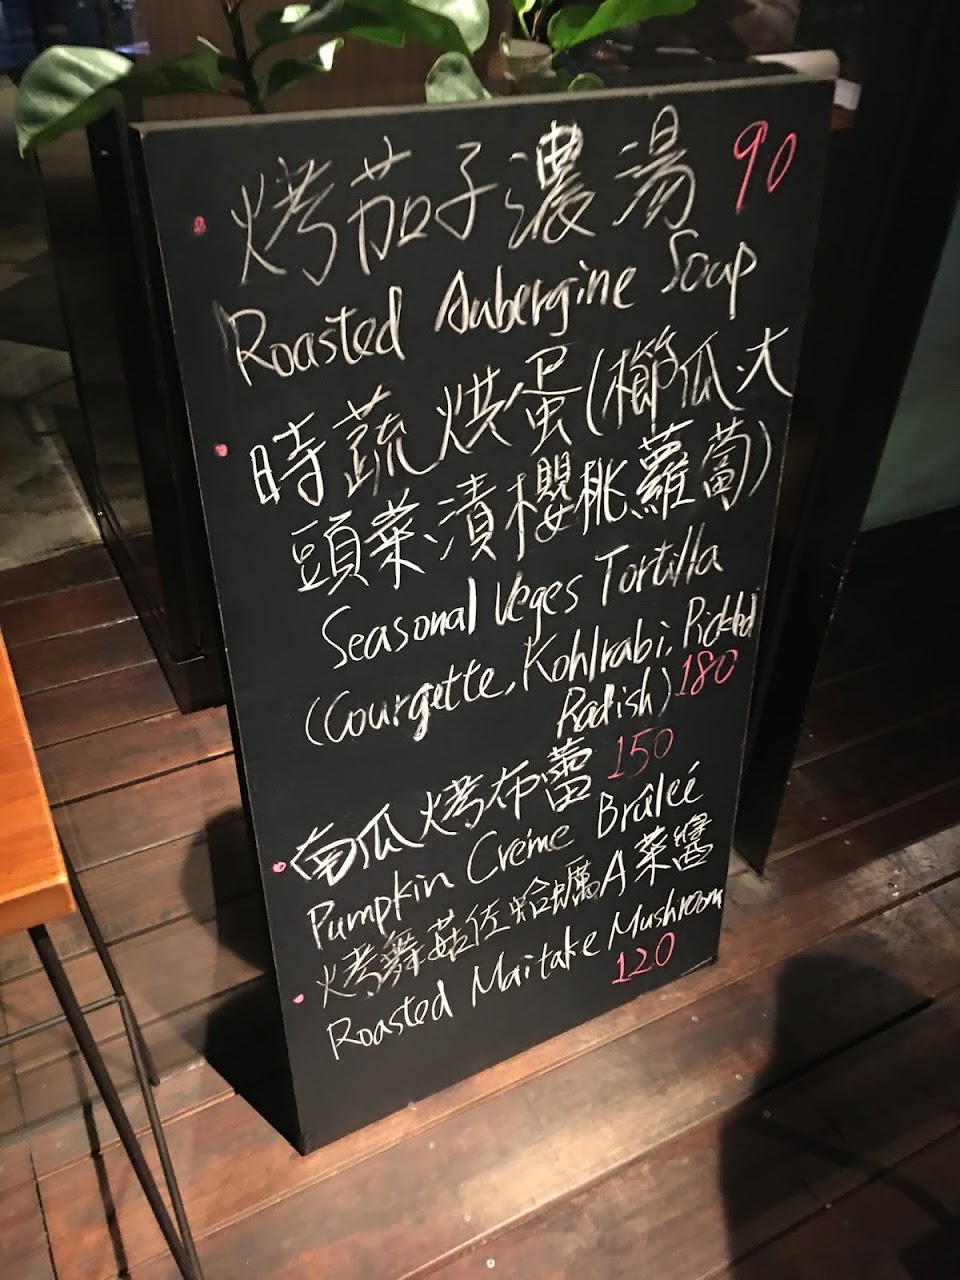 烤茄子濃湯 90
Roasted Aubergine Soup
時蔬烘蛋(櫛瓜、大
頭菜、漬櫻桃蘿蔔)
Seasonal Veges Tortilla
(Courgette, Kohlrabi, Pickled
Radish) 180
南瓜烤布蕾 150
Pumpkin Créme Brûleé
烤舞菇佐蛤蠣A菜醬
Roasted Maitake Mushroom
120